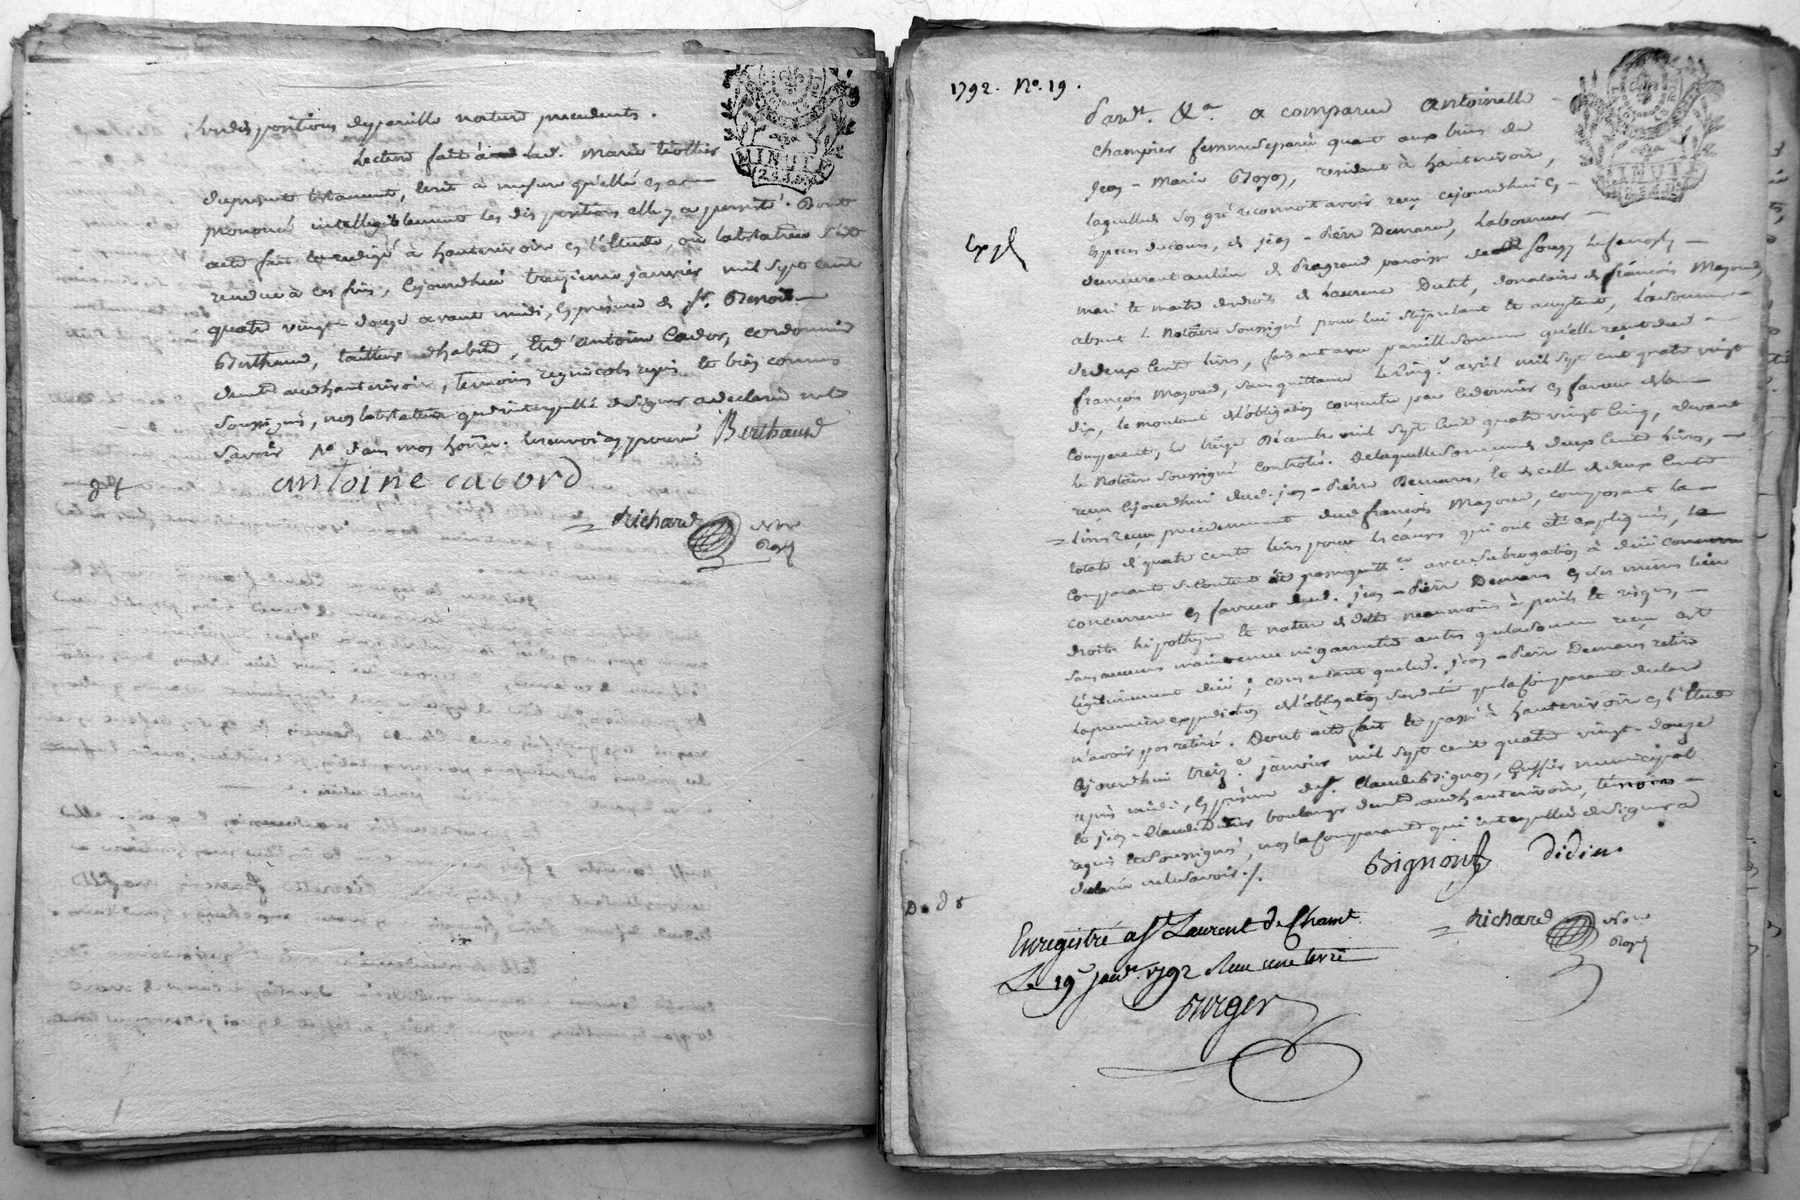 les dispositions de pareille nature precedents.
Lecture fait à lad. Marie
du present testament, écrit à mesure qu'elle en a
prononcé intelligiblement les dispositions elle y a persisté. Dont
acte fait et redigé à hauterivoir en l'étude, où la testatrice s'est
rendue à ces fins, cejourdhui treizieme janvier mil sept cent
quatre vingt douze avant midi, en présence de sr. Benoit
Berthaud, tailleur d'habits, et d'antoine Cador, cordonnier
demts aud hauterivoir, temoins requis et bien connus
soussignés, non la testatrice qui de interpellée de signer a declaré ne le
savoir
Berthaud
antoine cacord
Richard Nore
Royl
1792. No. 19.
Pardt. &a. a comparu Antoinette
champier femme separée quant aux biens de
jean - Marie Royon, residant à hauterivoir,
laquelle de son gré reconnoit avoir reçu cejourdhui en
Expé
especes de cours, de jean - pierre Demare, laboureur
demeurant au lieu de paroisse de
mari et maitre des droits de Laurence Dutel, donataire de françois Mazoud,
absent le Notaire soussigné pour lui stipulant et acceptant, la somme
de deux cents livres, faisant avec pareille somme qu'elle reçut dud
françois Mazoud, sans quittance le cinq. avril mil sept cent quatre vingt
dix, le montant de l'obligation consentie par ce dernier en faveur de la
comparante, le treize Décembre mil sept cent quatre vingt cinq, devant
le Notaire soussigné controlée. De laquelle somme de deux cents livres,
reçue cejourdhui dud. jean - pierre Demare, et de celle de deux cents
livres reçue precedemment dud françois Mazoud, composant la
totale de quatre cents livres pour les causes qui ont été expliquées, la
comparante se contente et passe quitte avec subrogation à due concurrence
concurrence en faveur dud. jean - pierre Demare en ses mêmes lieu
droits hipothèque et nature de dette neanmoins à perils et risques,
sans aucune maintenue ni garantie autre que la somme reçue est
légitimement due; consentant que led. jean - pierre Demare retire
la premiere expedition de l'obligation susdatée que la comparante declare
n'avoir pas retiré. Dont acte fait et passé à hauterivoir en l'étude
cejourdhui treize. janvier mil sept cent quatre vingt - douze
après midi, en présence de sr. Claude Bignon, greffier municipal
et jean - Claude Didier boulanger demts aud hauterivoir, témoins
requis et soussignés, non la comparante qui interpellée de signer a
declaré ne le savoir ./.
Bignon didier
Richard Nore
Royl
Enregistré a St Laurent de Cham.t
Le 19 janr. 1792 Reçu une livre
Burger